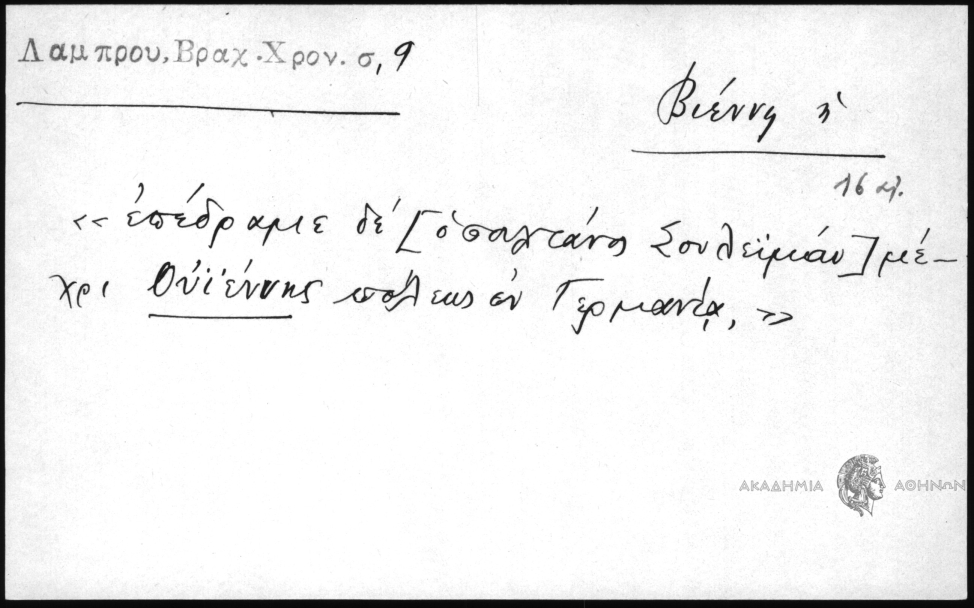 Λαμπρου, Βραχ. Χρον. σ, 9
Βιέννη ἡ
16 αἰ.
«ἐπέδραμε δέ [ὁ σουλτάνος Σουλεϊμάν] μέ-
χρι Οὐϊέννης πόλεως ἐν Γερμανίᾳ, »
ΑΚΑΔΗΜΙΑ ΑΘΗΝΩΝ